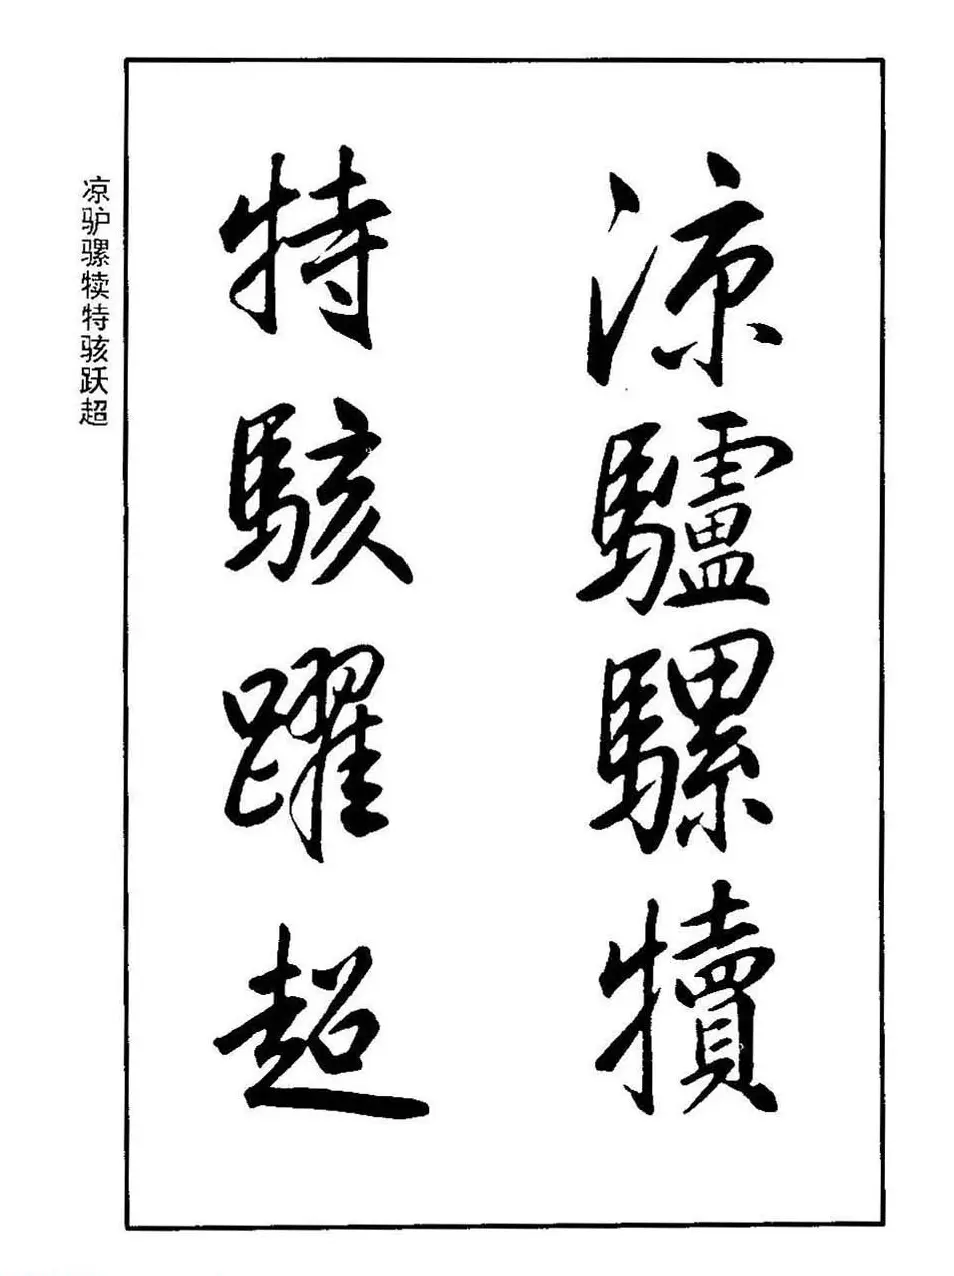 涼驢騾犢
特駭躍超
凉驴骡犊特骇跃超